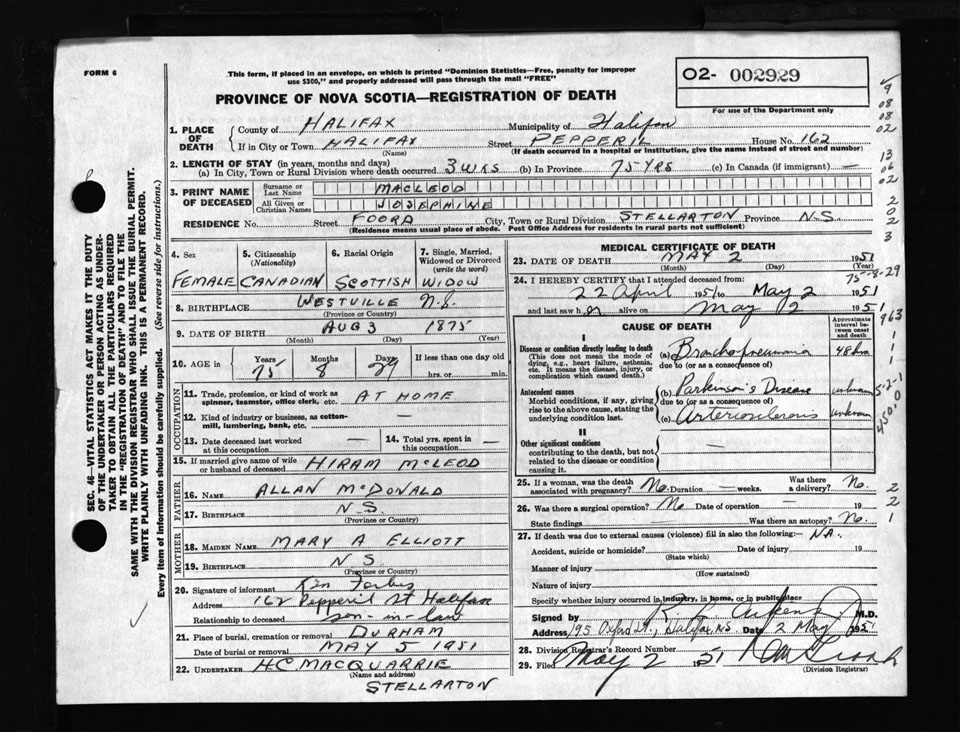 FORM 6
This form, if placed in an envelope, on which is printed "Dominion Statistics—Free, penalty for improper
use $300," and properly addressed will pass through the mail "FREE"
O2- 002929
For use of the Department only
PROVINCE OF NOVA SCOTIA—REGISTRATION OF DEATH
1. PLACE OF DEATH
County of HALIFAX Municipality of Halifax
If in City or Town HALIFAX Street PEPPERIL House No. 162
(Name) (If death occurred in a hospital or institution, give the name instead of street and number)
2. LENGTH OF STAY (in years, months and days)
(a) In City, Town or Rural Division where death occurred 3 WKS (b) In Province 75 YRS (c) In Canada (if immigrant) —
3. PRINT NAME OF DECEASED
Surname or Last Name MACLEOD
All Given or Christian Names JOSEPHINE
RESIDENCE No. Street FOORD City, Town or Rural Division STELLARTON Province N.S.
(Residence means usual place of abode. Post Office Address for residents in rural parts not sufficient)
4. Sex FEMALE
5. Citizenship (Nationality) CANADIAN
6. Racial Origin SCOTTISH
7. Single, Married, Widowed or Divorced (write the word) WIDOW
8. BIRTHPLACE WESTVILLE N.S.
(Province or Country)
9. DATE OF BIRTH AUG 3 1875
(Month) (Day) (Year)
10. AGE in Years 75 Months 8 Days 29 If less than one day old
hrs. or min.
OCCUPATION
11. Trade, profession, or kind of work as spinner, teamster, office clerk, etc. AT HOME
12. Kind of industry or business, as cotton-mill, lumbering, bank, etc. —
13. Date deceased last worked at this occupation —
14. Total yrs. spent in this occupation —
15. If married give name of wife or husband of deceased HIRAM McLEOD
FATHER
16. NAME ALLAN McDONALD
17. BIRTHPLACE N.S.
(Province or Country)
MOTHER
18. MAIDEN NAME MARY A ELLIOTT
19. BIRTHPLACE N S
(Province or Country)
20. Signature of informant Forbes
Address 162 Pepperil St Halifax
Relationship to deceased son-in-law
21. Place of burial, cremation or removal DURHAM
Date of burial or removal MAY 5 1951
22. UNDERTAKER H.C. MACQUARRIE
(Name and address)
STELLARTON
MEDICAL CERTIFICATE OF DEATH
23. DATE OF DEATH MAY 2 1951
(Month) (Day) (Year)
75-8-29
24. I HEREBY CERTIFY that I attended deceased from:
22 April 1951 to May 2 1951
and last saw h er alive on May 2 1951
CAUSE OF DEATH
Approximate interval between onset and death
I
Disease or condition directly leading to death
(This does not mean the mode of dying, e.g., heart failure, asthenia, etc. It means the disease, injury, or complication which caused death.)
(a) Broncho-pneumonia 48 hrs
due to (or as a consequence of)
Antecedent causes
Morbid conditions, if any, giving rise to the above cause, stating the underlying condition last.
(b) Parkinson's Disease unknown
due to (or as a consequence of)
(c) Arteriosclerosis unknown
II
Other significant conditions
contributing to the death, but not related to the disease or condition causing it.
25. If a woman, was the death associated with pregnancy? No Duration — weeks. Was there a delivery? No.
26. Was there a surgical operation? No Date of operation — 19
State findings — Was there an autopsy? No.
27. If death was due to external causes (violence) fill in also the following:— NA.
Accident, suicide or homicide? Date of injury 19
(State which)
Manner of injury
(How sustained)
Nature of injury
Specify whether injury occurred in industry, in home, or in public place
Signed by M.D.
Address 195 Oxford St., Halifax N.S. Date 2 May 1951
28. Division Registrar's Record Number
29. Filed May 2 1951
(Division Registrar)
SEC. 46—VITAL STATISTICS ACT MAKES IT THE DUTY
OF THE UNDERTAKER OR PERSON ACTING AS UNDER-
TAKER TO OBTAIN ALL THE PARTICULARS REQUIRED
IN THE "REGISTRATION OF DEATH" AND TO FILE THE
SAME WITH THE DIVISION REGISTRAR WHO SHALL ISSUE THE BURIAL PERMIT.
WRITE PLAINLY WITH UNFADING INK. THIS IS A PERMANENT RECORD.
Every item of information should be carefully supplied. (See reverse side for instructions.)
9
08
08
02
13
06
02
2
0
2
3
963
1
1
1
2
2
1